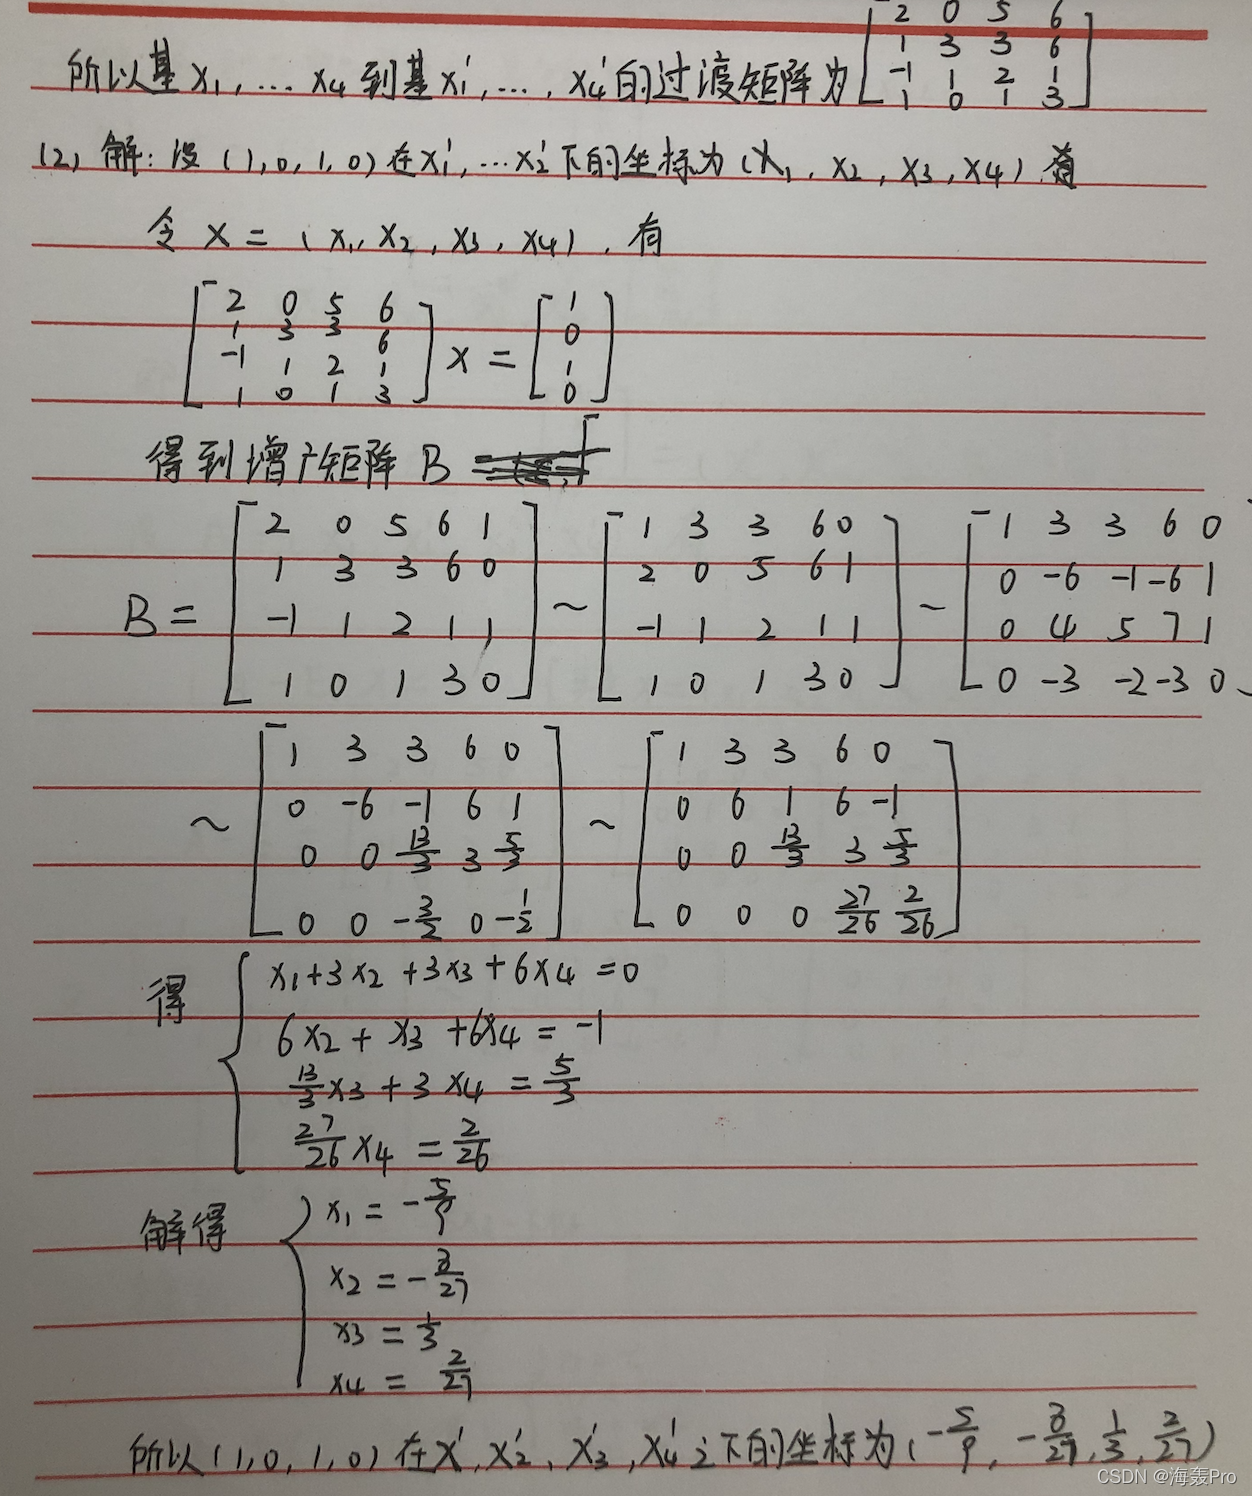 所以基 x₁, … x₄ 到基 x₁′, …, x₄′ 的过渡矩阵为 [2 0 5 6
1 3 3 6
-1 1 2 1
1 0 1 3]
(2) 解: 设 (1,0,1,0) 在 x₁′, … x₂′ 下的坐标为 (x₁, x₂, x₃, x₄)
令 x = (x₁, x₂, x₃, x₄), 有
[2 0 5 6
1 3 3 6
-1 1 2 1
1 0 1 3] x = [1 0 1 0]
得到增广矩阵 B
B = [2 0 5 6 1 ~ [1 3 3 6 0 ~ [1 3 3 6 0
1 3 3 6 0 2 0 5 6 1 0 -6 -1 -6 1
-1 1 2 1 1 -1 1 2 1 1 0 4 5 7 1
1 0 1 3 0] 1 0 1 3 0] 0 -3 -2 -3 0]
~ [1 3 3 6 0 ~ [1 3 3 6 0
0 -6 -1 6 1 0 6 1 6 -1
0 0 13/3 3 5/3 0 0 13/3 3 5/3
0 0 -3/2 0 -1/2] 0 0 0 27/26 2/26]
得 { x₁+3x₂+3x₃+6x₄ = 0
6x₂ + x₃ + 6x₄ = -1
13/3 x₃ + 3x₄ = 5/3
27/26 x₄ = 2/26
解得 { x₁ = -5/9
x₂ = -8/27
x₃ = 1/3
x₄ = 2/27
所以 (1,0,1,0) 在 x′, x₂′, x₃′, x₄′ 之下的坐标为 (-5/9, -8/27, 1/3, 2/27)
CSDN @海轰Pro